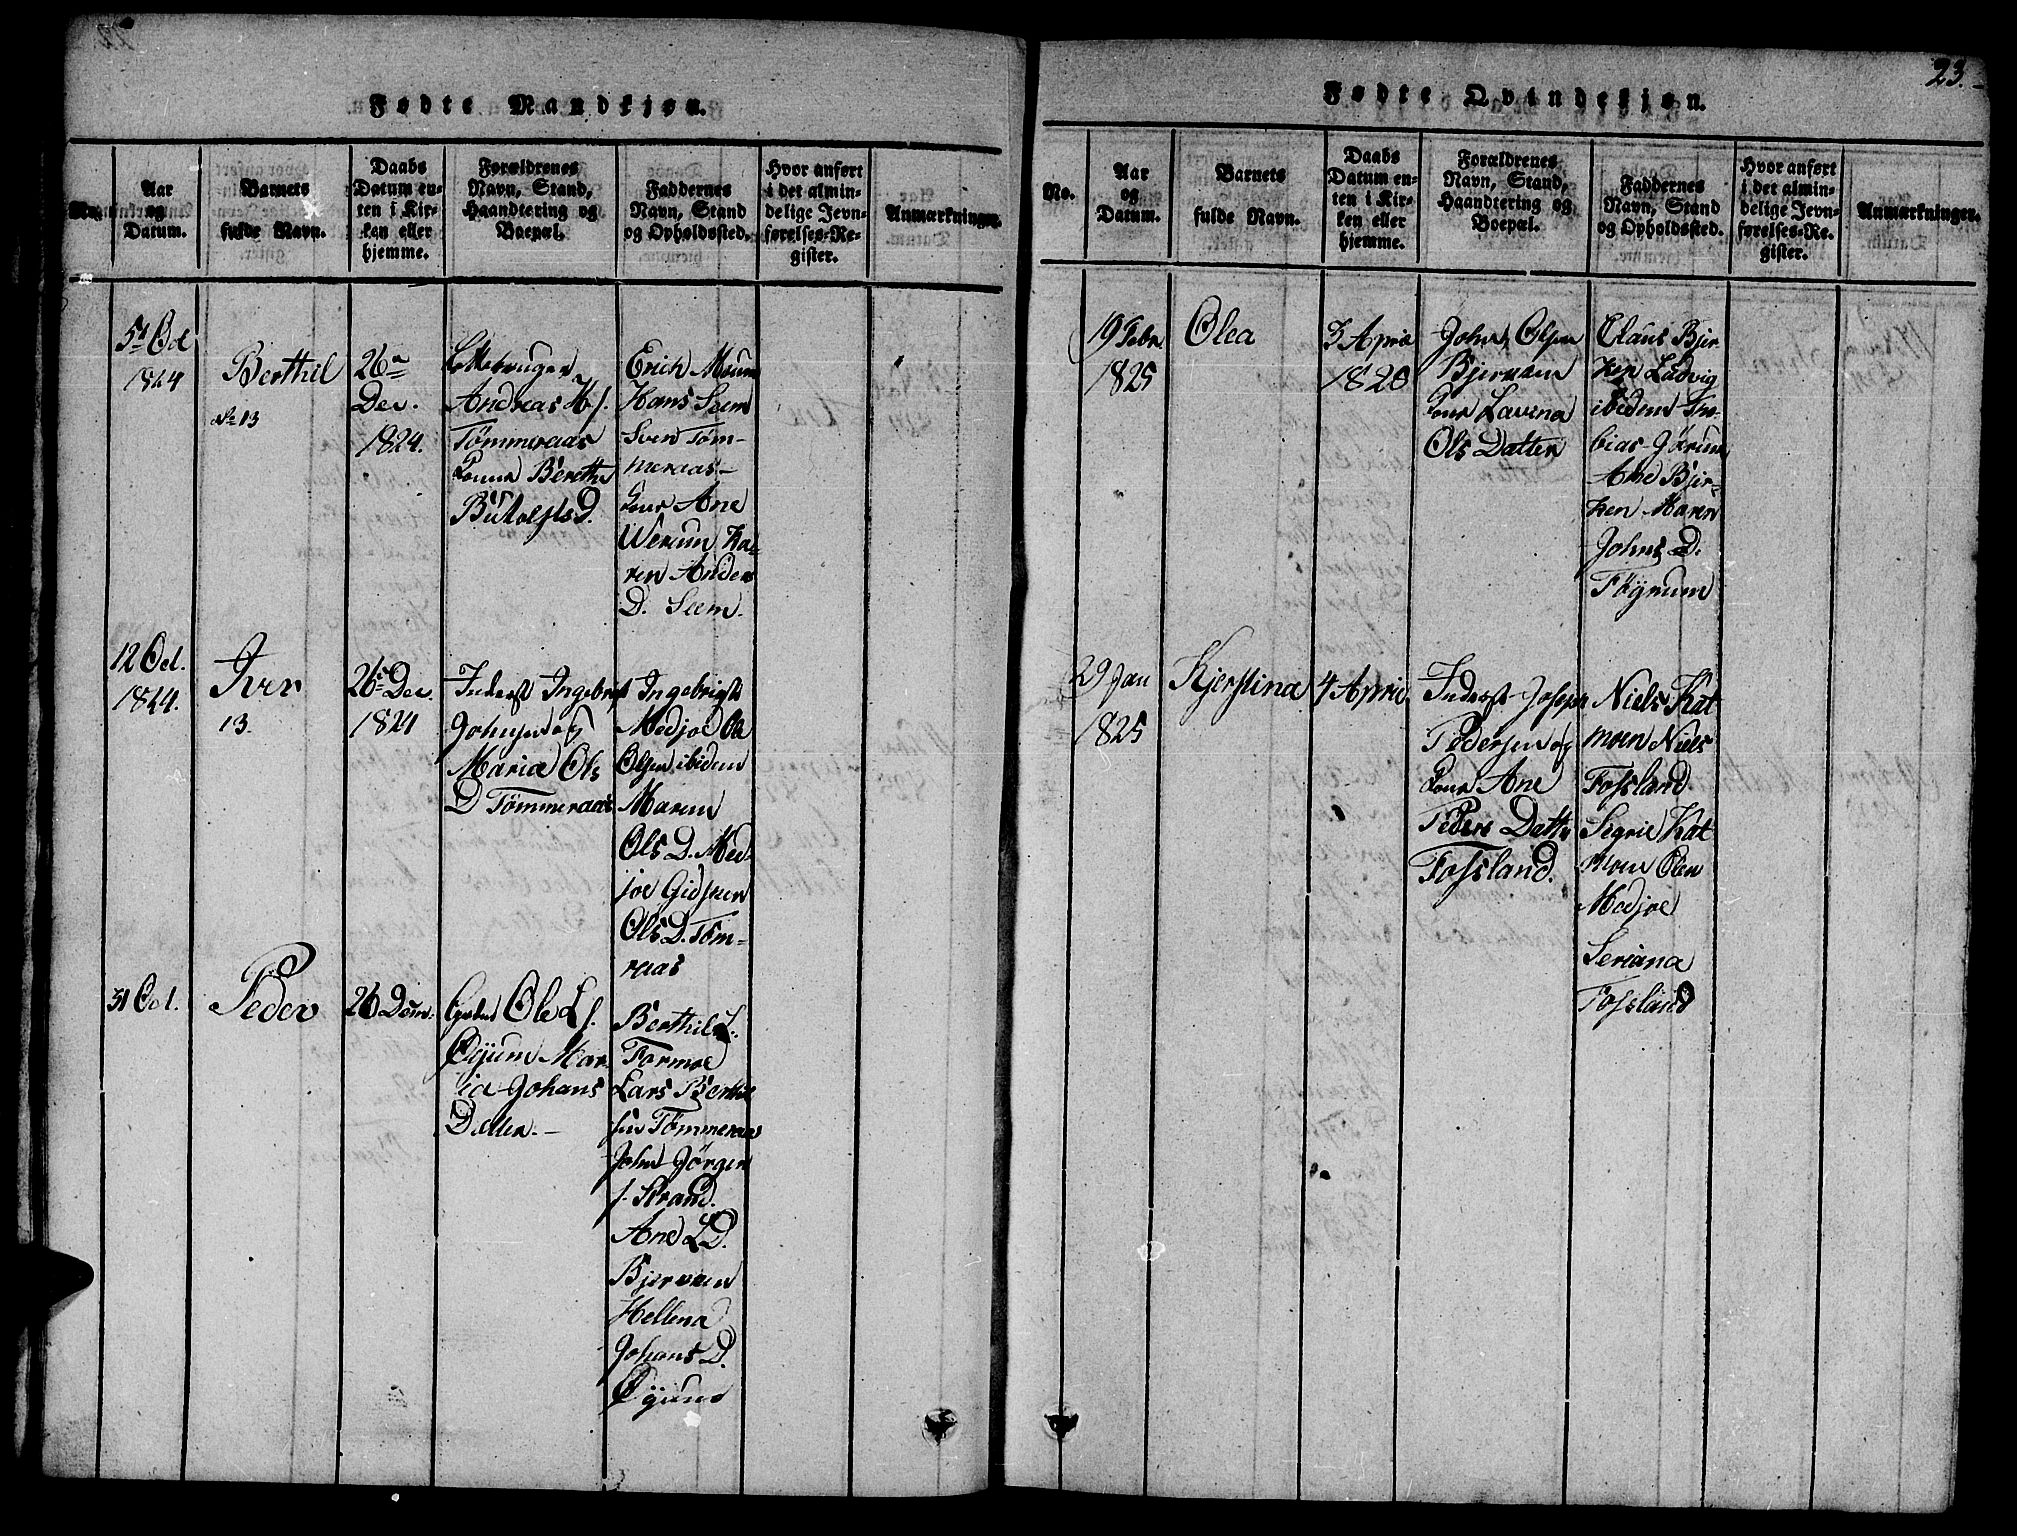 Fødte Mandkjøn.
No.
Aar
og
Datum.
Barnets
fulde Navn.
Daabs
Datum en-
ten i Kir-
ken eller
hjemme.
Forældrenes
Navn, Stand,
Haandtering og
Boepæl.
Faddernes
Navn, Stand
og Opholdssted.
Hvor anført
i det almin-
delige Jevn-
førelses-Re-
gister.
Anmærkninger.
5t Oct
1824
Berthil
No 13
26de
Dec.
1824.
Andreas H. s.
Tømmeraas
Konne Berethe
D.
Erich
Hans Seem
Sven Tøm-
meraas-
Kone Ane
Werum Ka-
ren Anders
D. Seem.
12 Oct.
1824.
Iver
13.
26 Dec
1824
Inderst Ingebrigt
Johnsen og
Maria Ols
D Tømmeraas
Ingebrigt
Medjoe Ole
Olsen ibidem
Maren
Ols D. Med
joe
Ols D. Tøm-
raas
31 Oct.
Peder
26
Ole L s.
Øyum Mar
ia Johans
Datter.-
Berthil L.
Formoe
Lars Berthil
sen Tømmeraas
John Jørgen
s. Strand.
Ane L D.
Bjerken
Hellena
Johans D.
Øyum
23.
Fødte Qvindekjøn.
No.
Aar
og
Datum.
Barnets
fulde Navn.
Daabs
Datum en-
ten i Kir-
ken eller
hjemme.
Forældrenes
Navn, Stand,
Haandtering og
Boepæl.
Faddernes
Navn, Stand
og Opholdssted.
Hvor anført
i det almin-
delige Jevn-
førelses-Re-
gister.
Anmærkninger.
19 Febr
1825
Olea
3 April
John Olsen
Bjerken
Kone Lavena
Ols Datter
Claus Bjer
ken Ludvig
ibidem To-
bias Grøum
Ane Bjer-
ken Maren
Johns D.
29 Jan
1825
Kjerstina
4 April
Inderst Joseph
Pedersen og
Kone Ane
Peders Datter
Fossland.
Niels Kat
moen Niels
Fossland
Segrie Kat
moen Olen
Medjoe
Seriana
Fossland